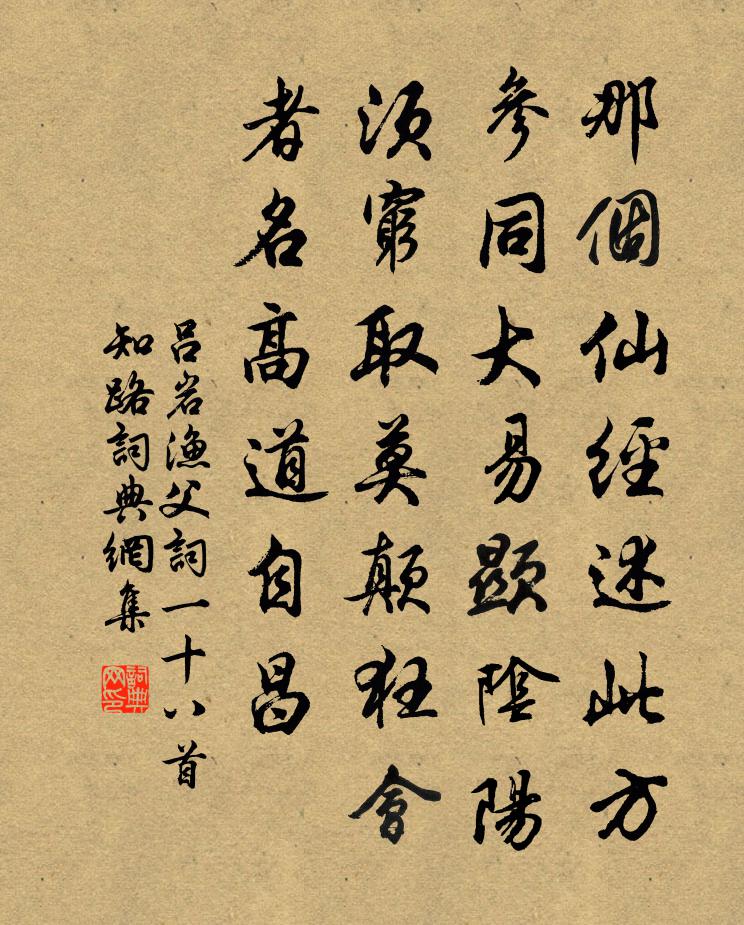 那個仙經述此方
參同大易顯陰陽
須窮取莫顛狂會
者名高道自昌
呂岩漁父詞一十八首
知路詞典網集
詞典
网印